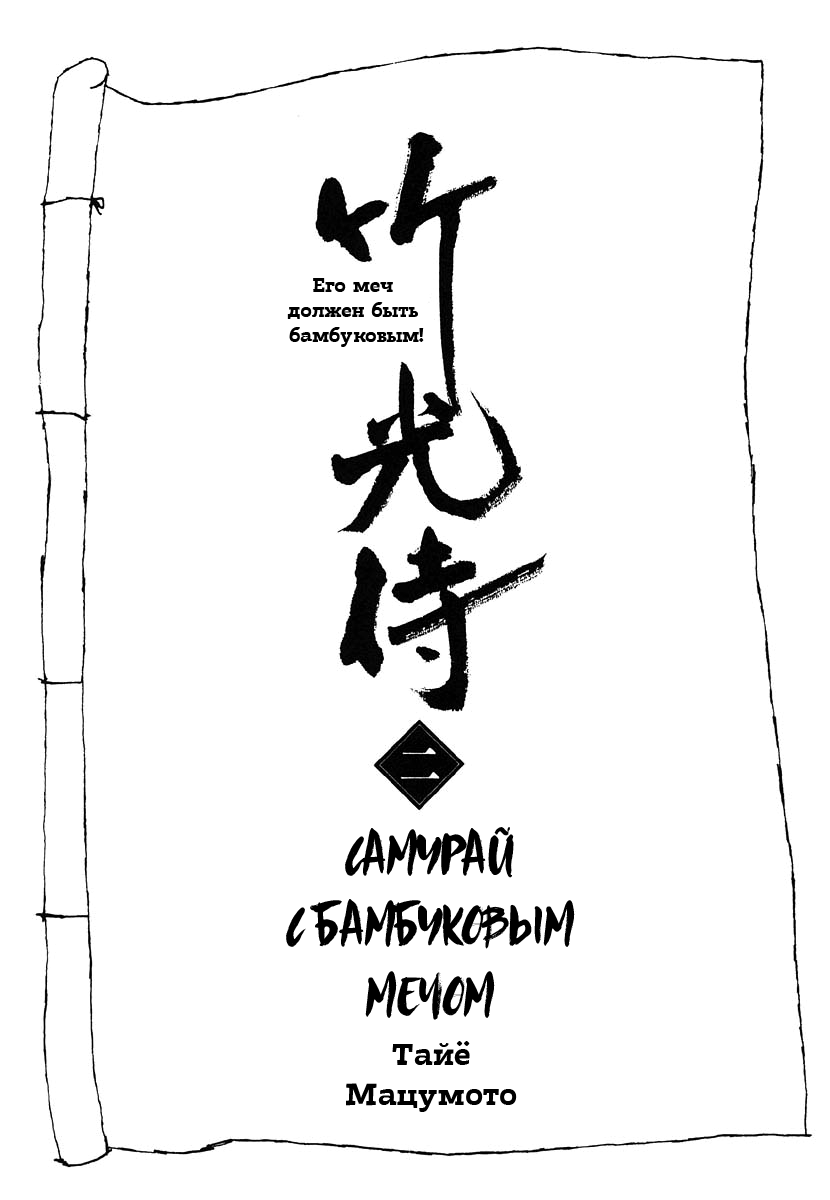 竹光侍
Его меч
должен быть
бамбуковым!
二
САМУРАЙ
С БАМБУКОВЫМ
МЕЧОМ
Тайё
Мацумото